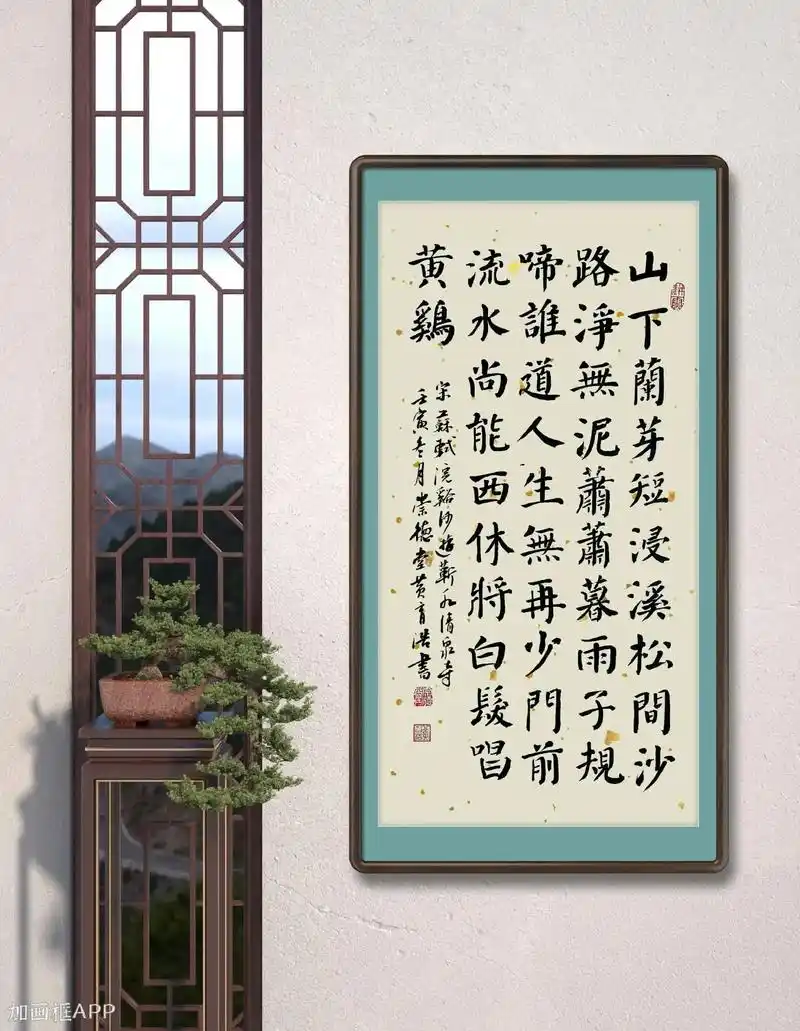 山下蘭芽短浸溪松間沙
路淨無泥蕭蕭暮雨子規
啼誰道人生無再少門前
流水尚能西休將白髮唱
黃鷄
宋蘇軾浣谿沙遊蘄水清泉寺
壬寅冬月崇德堂黃育浩書
加画框APP